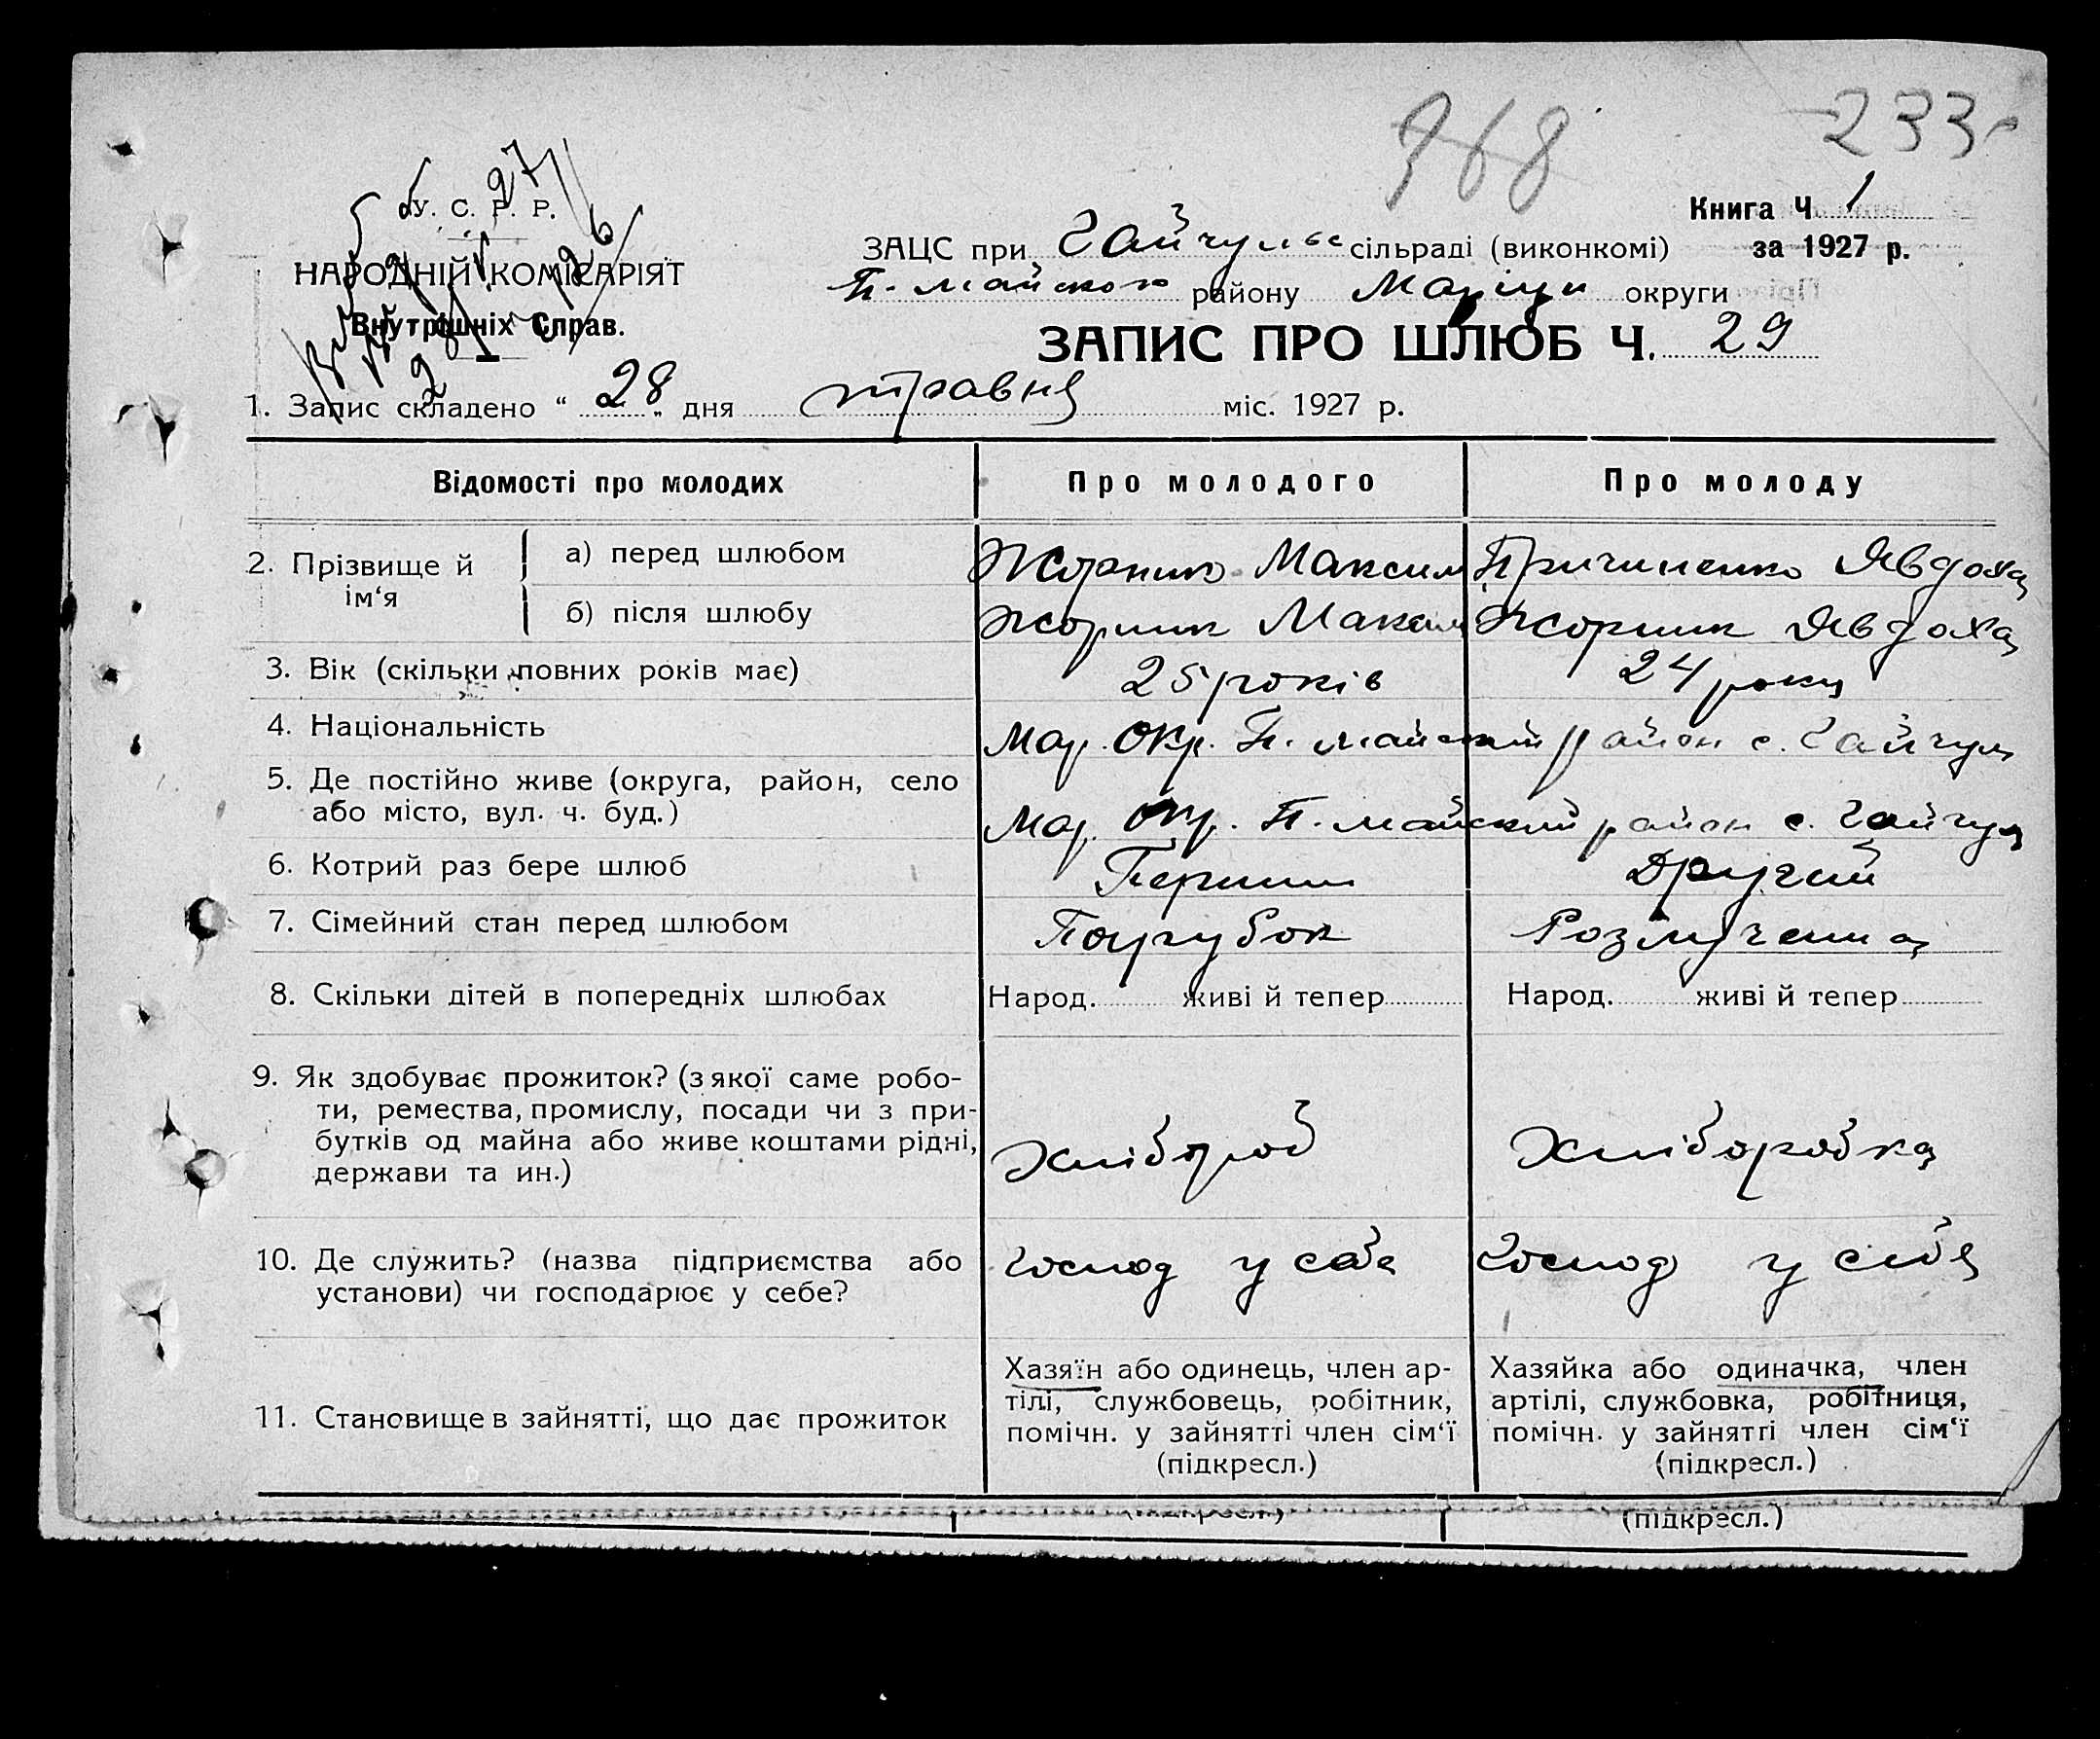 368
233
У. С. Р. Р.
НАРОДНІЙ КОМІСАРІЯТ
Внутрішніх Справ.
Книга Ч 1
за 1927 р.
ЗАЦС при Гайчульс сільраді (виконкомі)
П-майского району Маріуп округи
ЗАПИС ПРО ШЛЮБ Ч. 29
1. Запис складено “ 28 „ дня травня міс. 1927 р.
Відомості про молодих Про молодого Про молоду
2. Прізвище й ім‘я
а) перед шлюбом Жорник Максим Причиненко Явдоха
б) після шлюбу Жорник Максим Жорник Явдоха
3. Вік (скільки повних років має) 25 років 24 роки
4. Національність Мар. Окр. П. майский район с. Гайчул
5. Де постійно живе (округа, район, село
або місто, вул. ч. буд.) Мар. Окр. П. майский район с. Гайчул
6. Котрий раз бере шлюб Перший Другий
7. Сімейний стан перед шлюбом Парубок Розлучена
8. Скільки дітей в попередніх шлюбах Народ. живі й тепер Народ. живі й тепер
9. Як здобуває прожиток? (з якої саме робо-
ти, ремества, промислу, посади чи з при-
бутків од майна або живе коштами рідні,
держави та ин.) Хлібороб Хліборобка
10. Де служить? (назва підприємства або
установи) чи господарює у себе? Господ у себе Господ у себя
11. Становище в зайнятті, що дає прожиток
Хазяїн або одинець, член ар-
тілі, службовець, робітник,
помічн. у зайнятті член сім‘ї
(підкресл.)
Хазяйка або одиначка, член
артілі, службовка, робітниця,
помічн. у зайнятті член сім‘ї
(підкресл.)
(підкресл.)